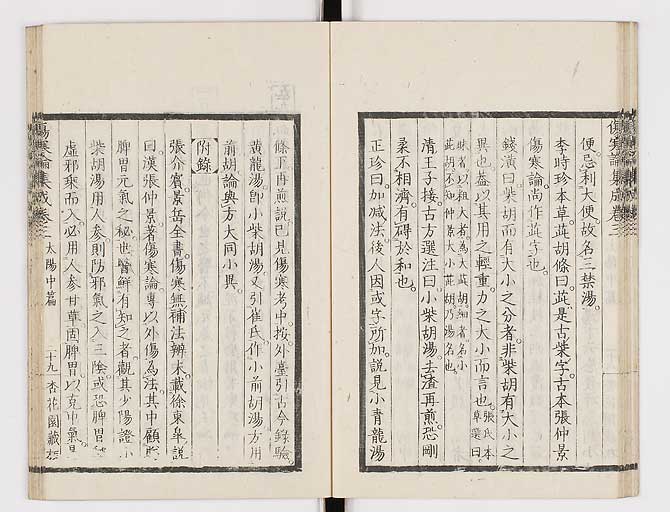 傷寒論集成卷三
便忌利大便故名三禁湯
李時珍本草茈胡條曰茈是古柴字古本張仲景
傷寒論尚作茈字也
錢潢曰柴胡而有大小之分者非柴胡有大小之
異也蓋以其用之輕重力之大小而言也張氏本草選曰
昧者以粗大者為大茈胡細者名小
茈胡不知仲景大小茈胡乃湯名也
清王子接古方選注曰小柴胡湯去渣再煎恐剛
柔不相濟有碍於和也
正珍曰加減法後人因或字所加說見小青龍湯
條下再煎說已見傷寒考中按外臺引古今錄驗
黄龍湯即小柴胡湯又引崔氏作小前胡湯方用
前胡論與方大同小異
附錄
張介賓景岳全書傷寒無補法辨末載徐東皐說
曰漢張仲景著傷寒論專以外傷為法其中顧盻
脾胃元氣之秘世醫鮮有知之者觀其少陽證小
柴胡湯用人参則防邪氣之入三陰或恐脾胃
虛邪乘而入必用人参甘草固脾胃以克中氣是
傷寒論集成卷三 太陽中篇 二十九 杏花園藏